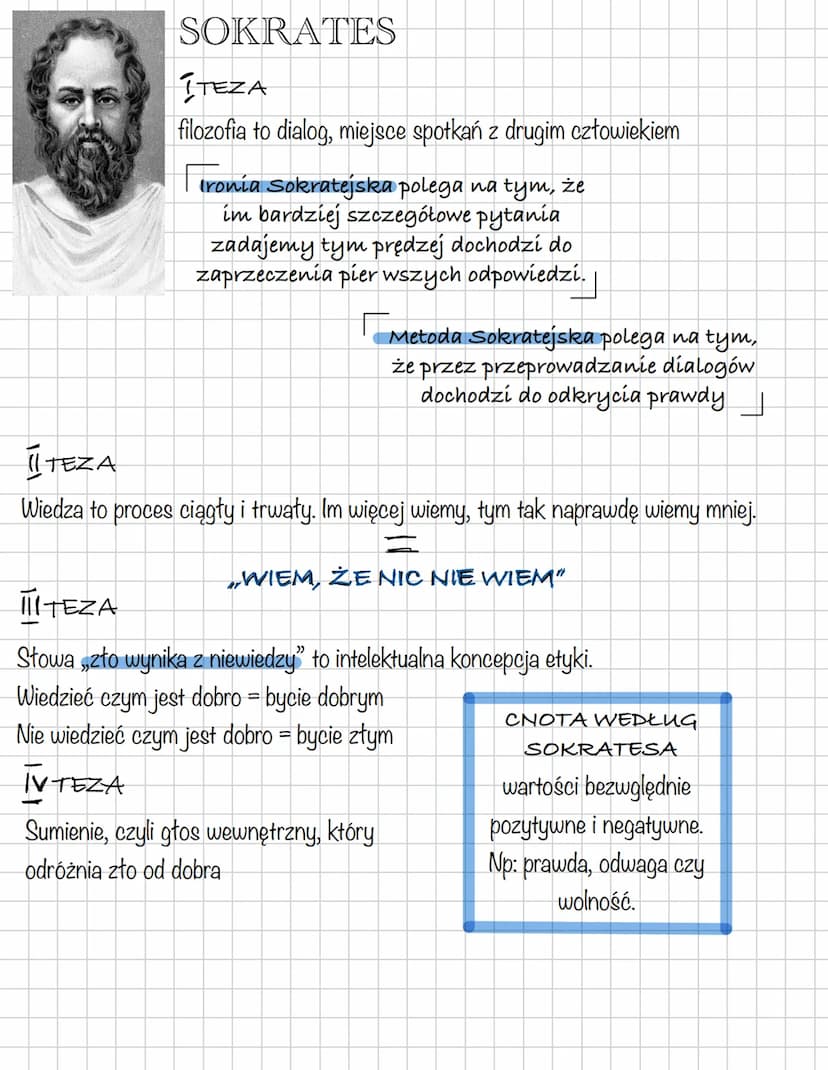 SOKRATES
I TEZA
filozofia to dialog, miejsce spotkań z drugim człowiekiem
Ironia Sokratejska polega na tym, że
im bardziej szczegółowe pytania
zadajemy tym prędzej dochodzi do
zaprzeczenia pier wszych odpowiedzi.
Metoda Sokratejska polega na tym,
że przez przeprowadzanie dialogów
dochodzi do odkrycia prawdy
II TEZA
Wiedza to proces ciągły i trwały. Im więcej wiemy, tym tak naprawdę wiemy mniej.
=
„WIEM, ŻE NIC NIE WIEM"
III TEZA
Słowa „zło wynika z niewiedzy" to intelektualna koncepcja etyki.
Wiedzieć czym jest dobro = bycie dobrym
Nie wiedzieć czym jest dobro = bycie złym
IV TEZA
Sumienie, czyli głos wewnętrzny, który
odróżnia zło od dobra
CNOTA WEDŁUG
SOKRATESA
wartości bezwględnie
pozytywne i negatywne.
Np: prawda, odwaga czy
wolność.